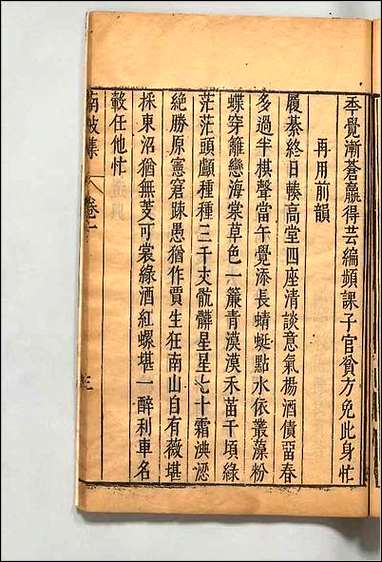 季覺漸蒼羸得芸編頻課子官貧方免此身忙
再用前韻
履綦終日輳高堂四座清談意氣楊酒債畱春
多過半棋聲當午覺添長蜻蜓點水依叢藻粉
蝶穿籬戀海棠草色一簾青漠漠禾苗千頃綠
茫茫頭顱種種三千丈骯髒星星七十霜澳涊
絶勝原憲窘踈愚猶作賈生狂南山自有薇堪
採東沼猶無芰可裳綠酒紅螺堪一醉利車名
轂任他忙
南坡集 卷一 三